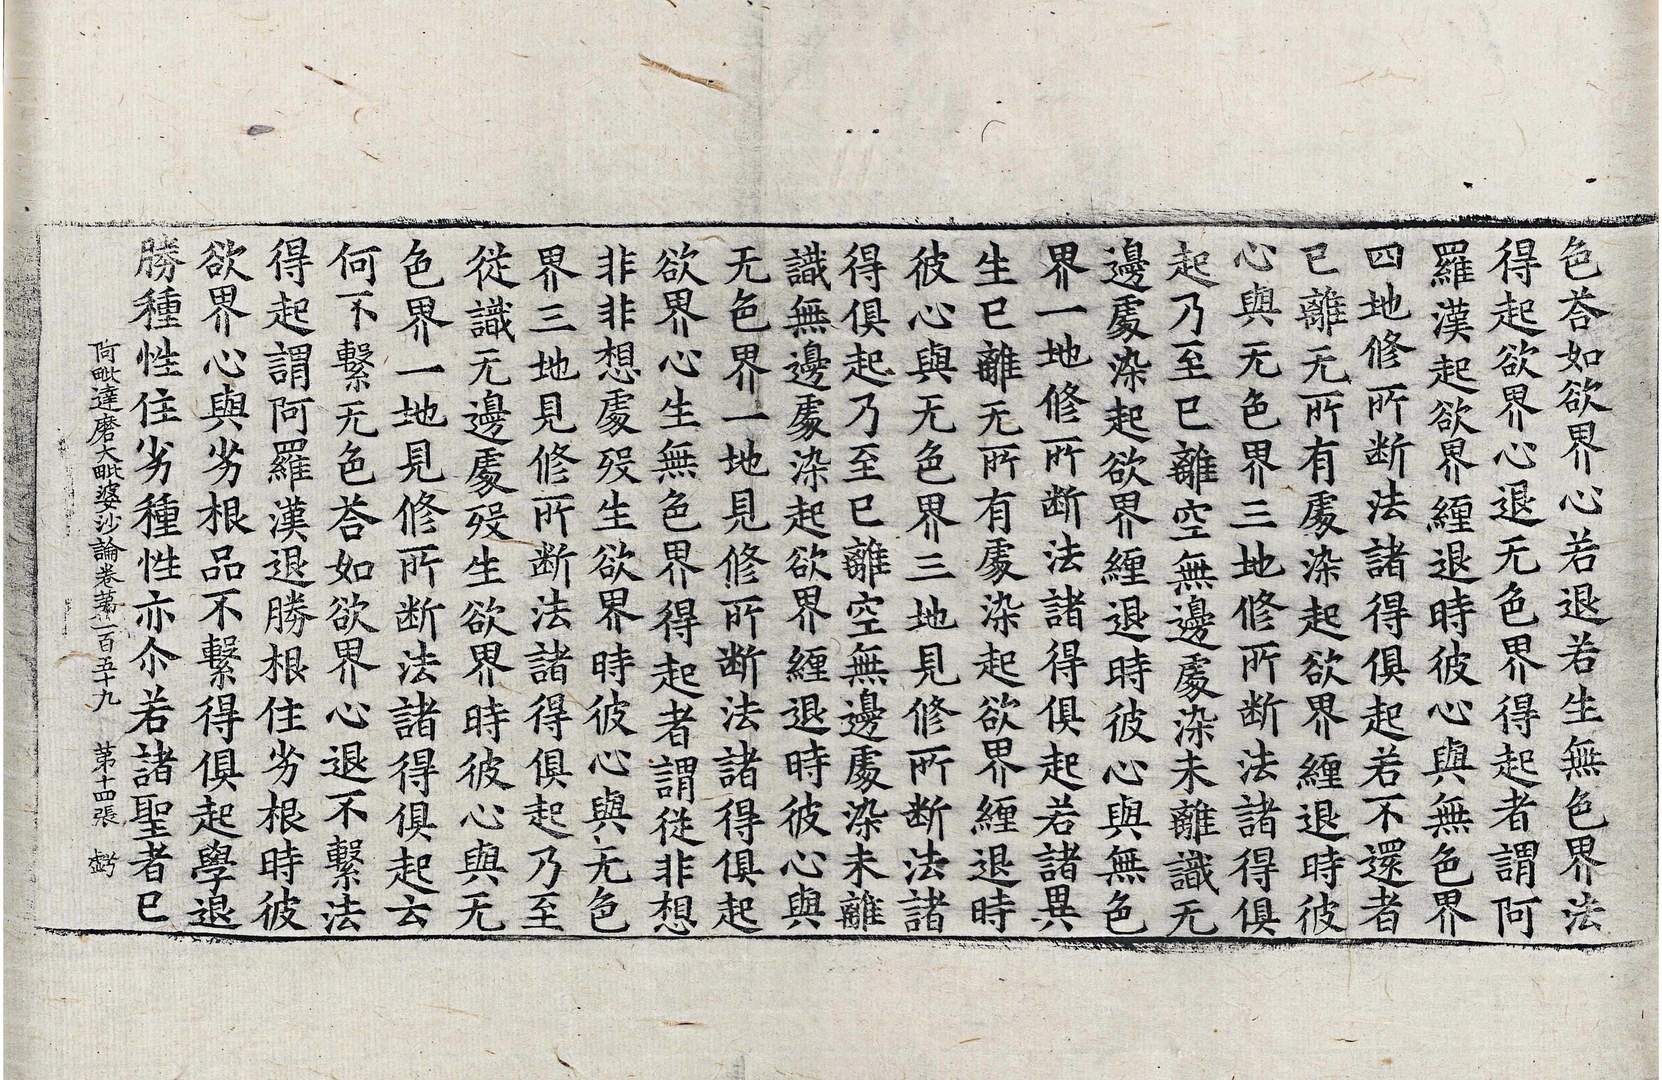 色荅如欲界心若退若生無色界法
得起欲界心退无色界得起者謂阿
羅漢起欲界纒退時彼心與無色界
四地修所断法諸得俱起若不還者
已離无所有處染起欲界纒退時彼
心與无色界三地修所断法諸得俱
起乃至已離空無邊處染未離識无
邊處染起欲界纒退時彼心與無色
界一地修所断法諸得俱起若諸異
生已離无所有處染起欲界纒退時
彼心與无色界三地見修所断法諸
得俱起乃至已離空無邊處染未離
識無邊處染起欲界纒退時彼心與
无色界一地見修所断法諸得俱起
欲界心生無色界得起者謂從非想
非非想處歿生欲界時彼心與无色
界三地見修所断法諸得俱起乃至
從識无邊處歿生欲界時彼心與无
色界一地見修所断法諸得俱起云
何不繫无色荅如欲界心退不繫法
得起謂阿羅漢退勝根住劣根時彼
欲界心與劣根品不繫得俱起學退
勝種性住劣種性亦尒若諸聖者已
阿毗達磨大毗婆沙論卷第一百五十九 第十四張